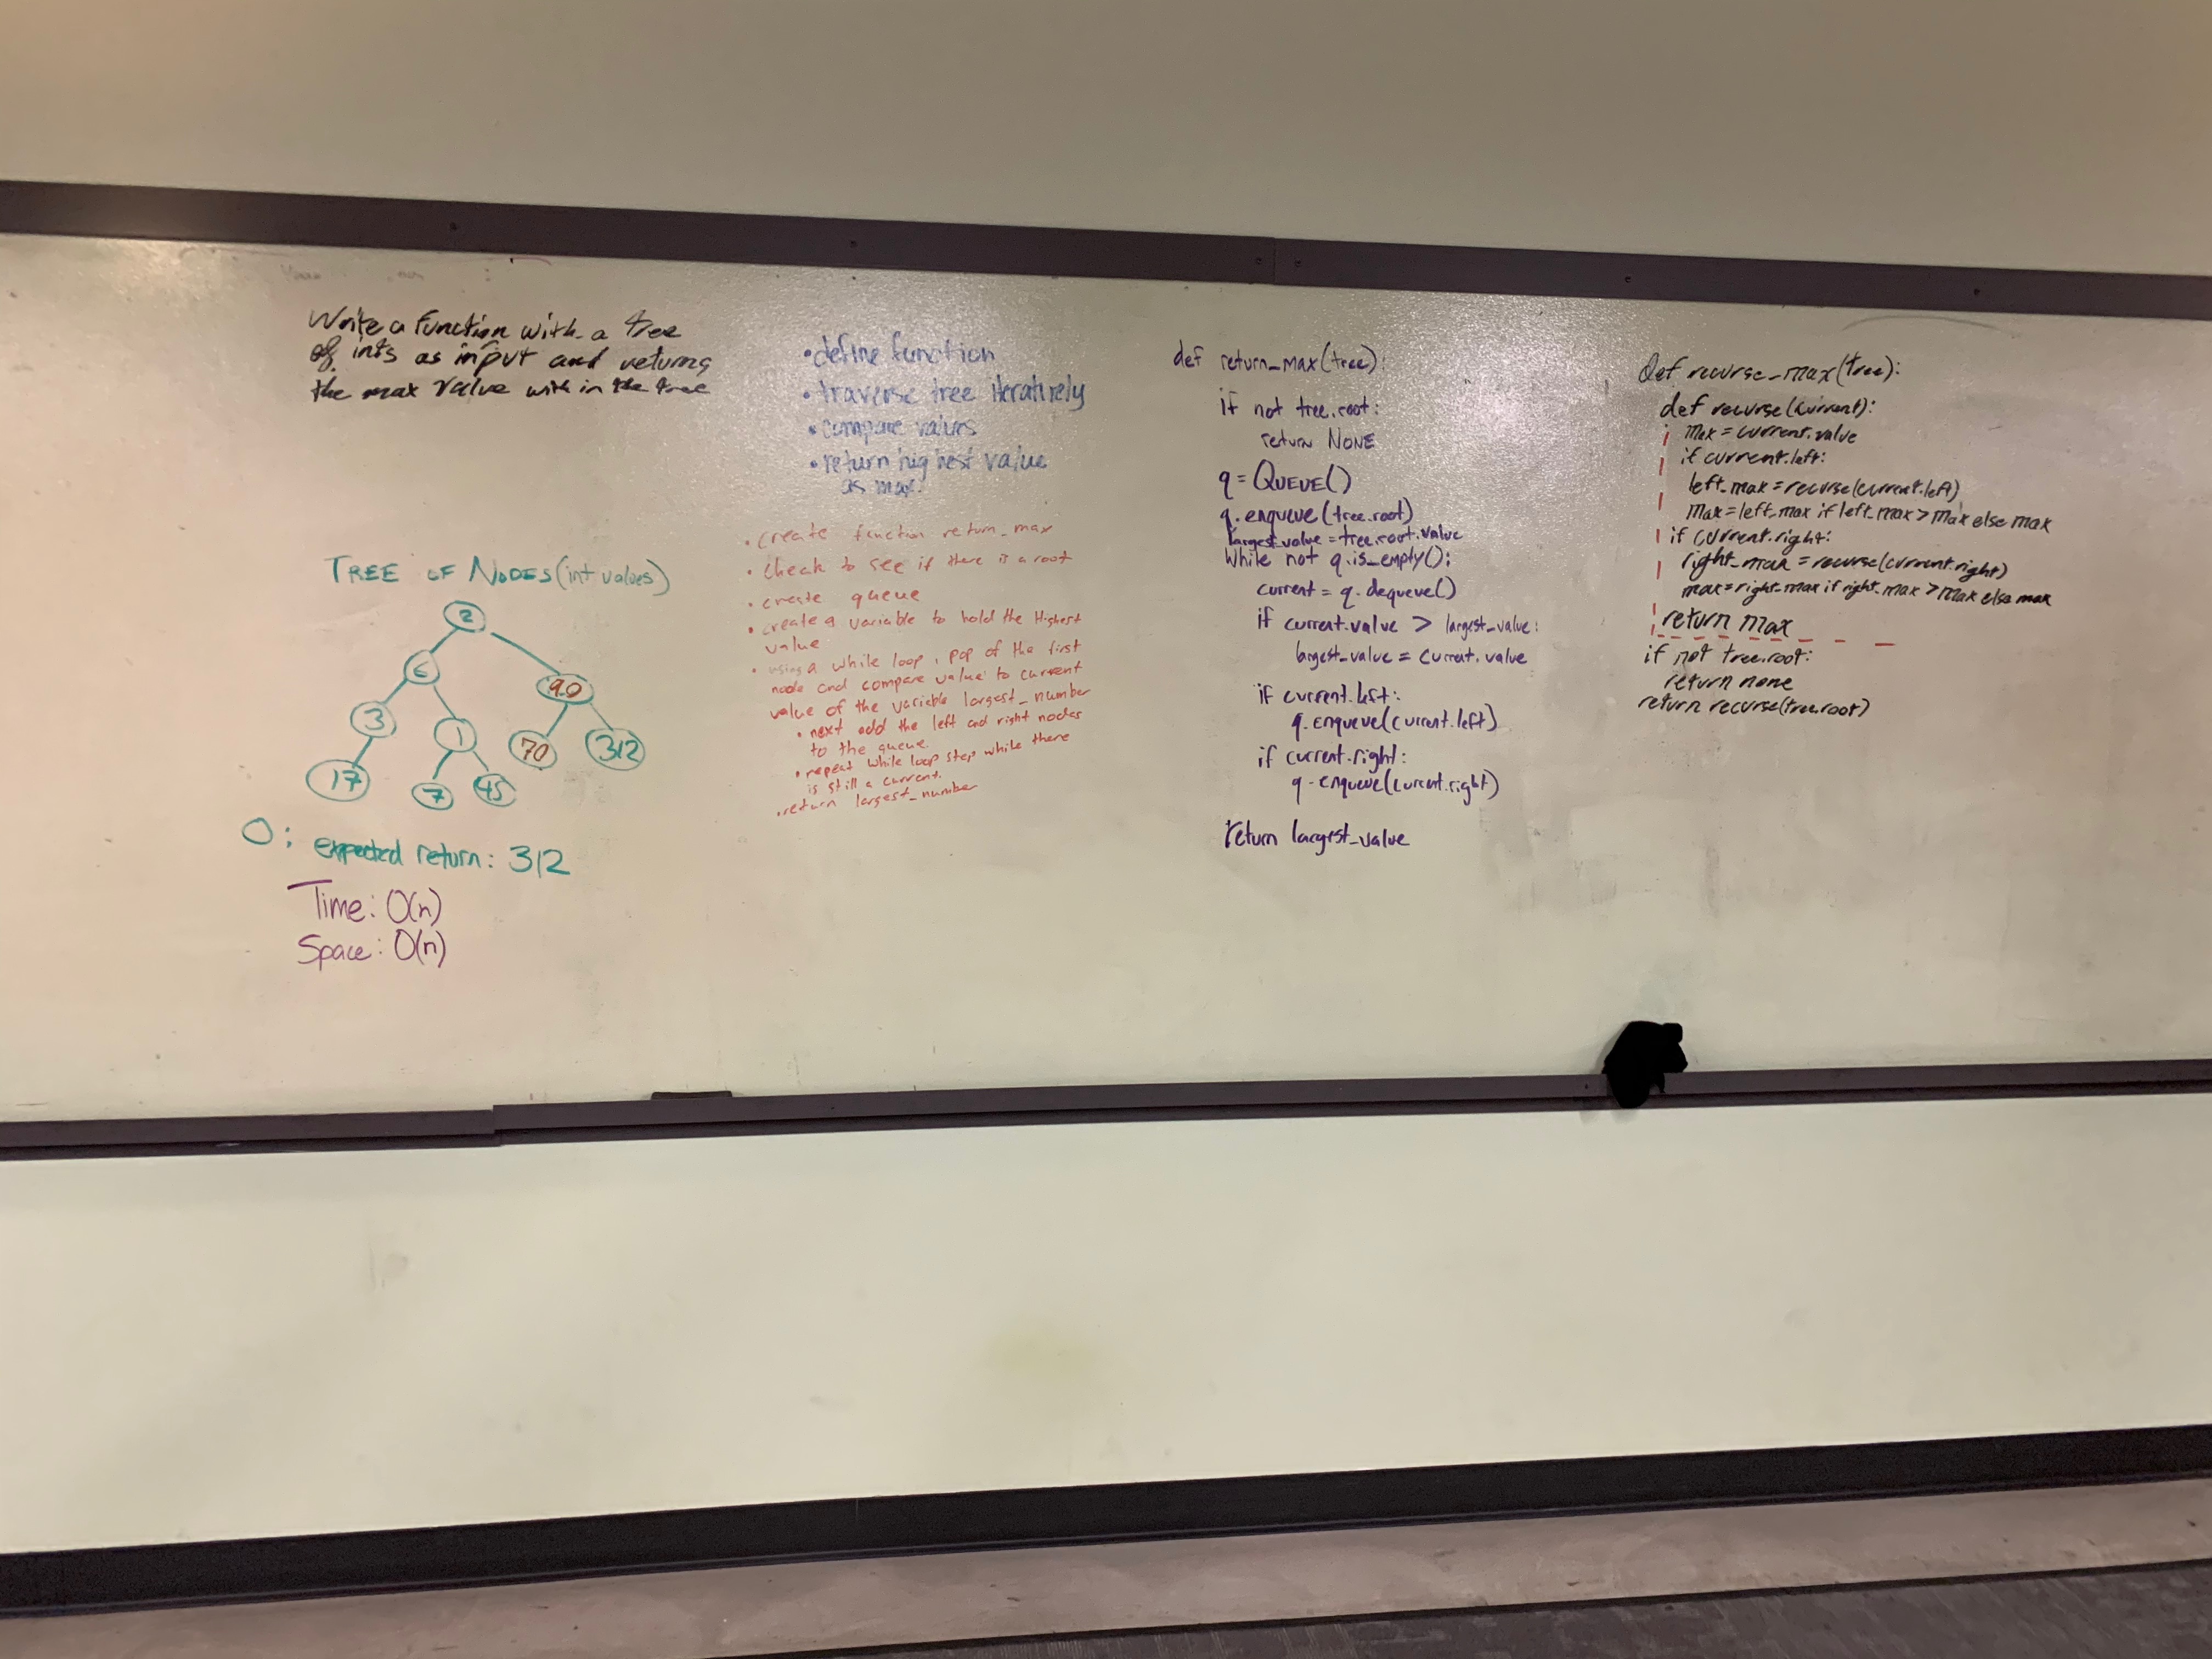 Write a function with a tree
of ints as input and returns
the max value with in the tree
TREE OF NODES (int values)
2
6
90
3
1
70
312
17
7
45
O: expected return: 312
Time: O(n)
Space: O(n)
• define function
• traverse tree iteratively
• compare values
• return highest value
as max.
• create function return_max
• check to see if there is a root
• create queue
• create a variable to hold the Highest
value
• using a while loop, pop of the first
node and compare value to current
value of the variable largest_number
• next add the left and right nodes
to the queue.
• repeat while loop step while there
is still a current.
• return largest_number
def return_max(tree):
if not tree.root:
return NONE
q = QUEUE()
q.enqueue(tree.root)
largest_value = tree.root.value
While not q.is_empty():
current = q.dequeue()
if current.value > largest_value:
largest_value = current.value
if current.left:
q.enqueue(current.left)
if current.right:
q.enqueue(current.right)
return largest_value
def recurse_max(tree):
def recurse(current):
max = current.value
if current.left:
left_max = recurse(current.left)
max = left_max if left_max > max else max
if current.right:
right_max = recurse(current.right)
max = right_max if right_max > max else max
return max
if not tree.root:
return none
return recurse(tree.root)